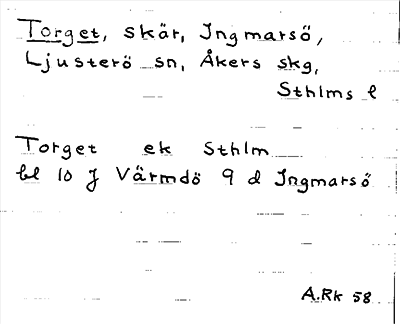 Torget, skär, Ingmarsö,
Ljusterö sn, Åkers skg,
Sthlms l
Torget ek Sthlm
bl 10 J Värmdö 9 d Ingmarsö
A.Rk 58